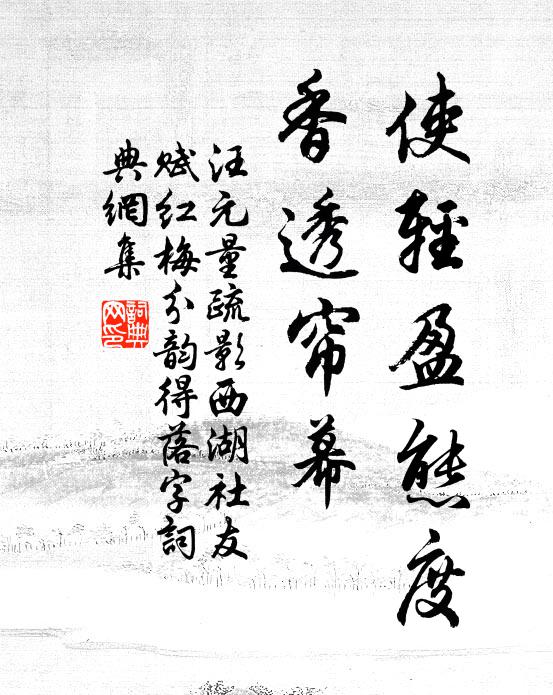 使輕盈態度
香透帘幕
汪元量疏影西湖社友
賦紅梅分韵得落字詞
典網集
詞典
网印